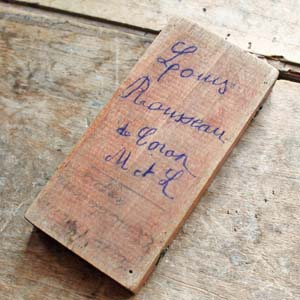 Louis
Rousseau
à Coron
M & L